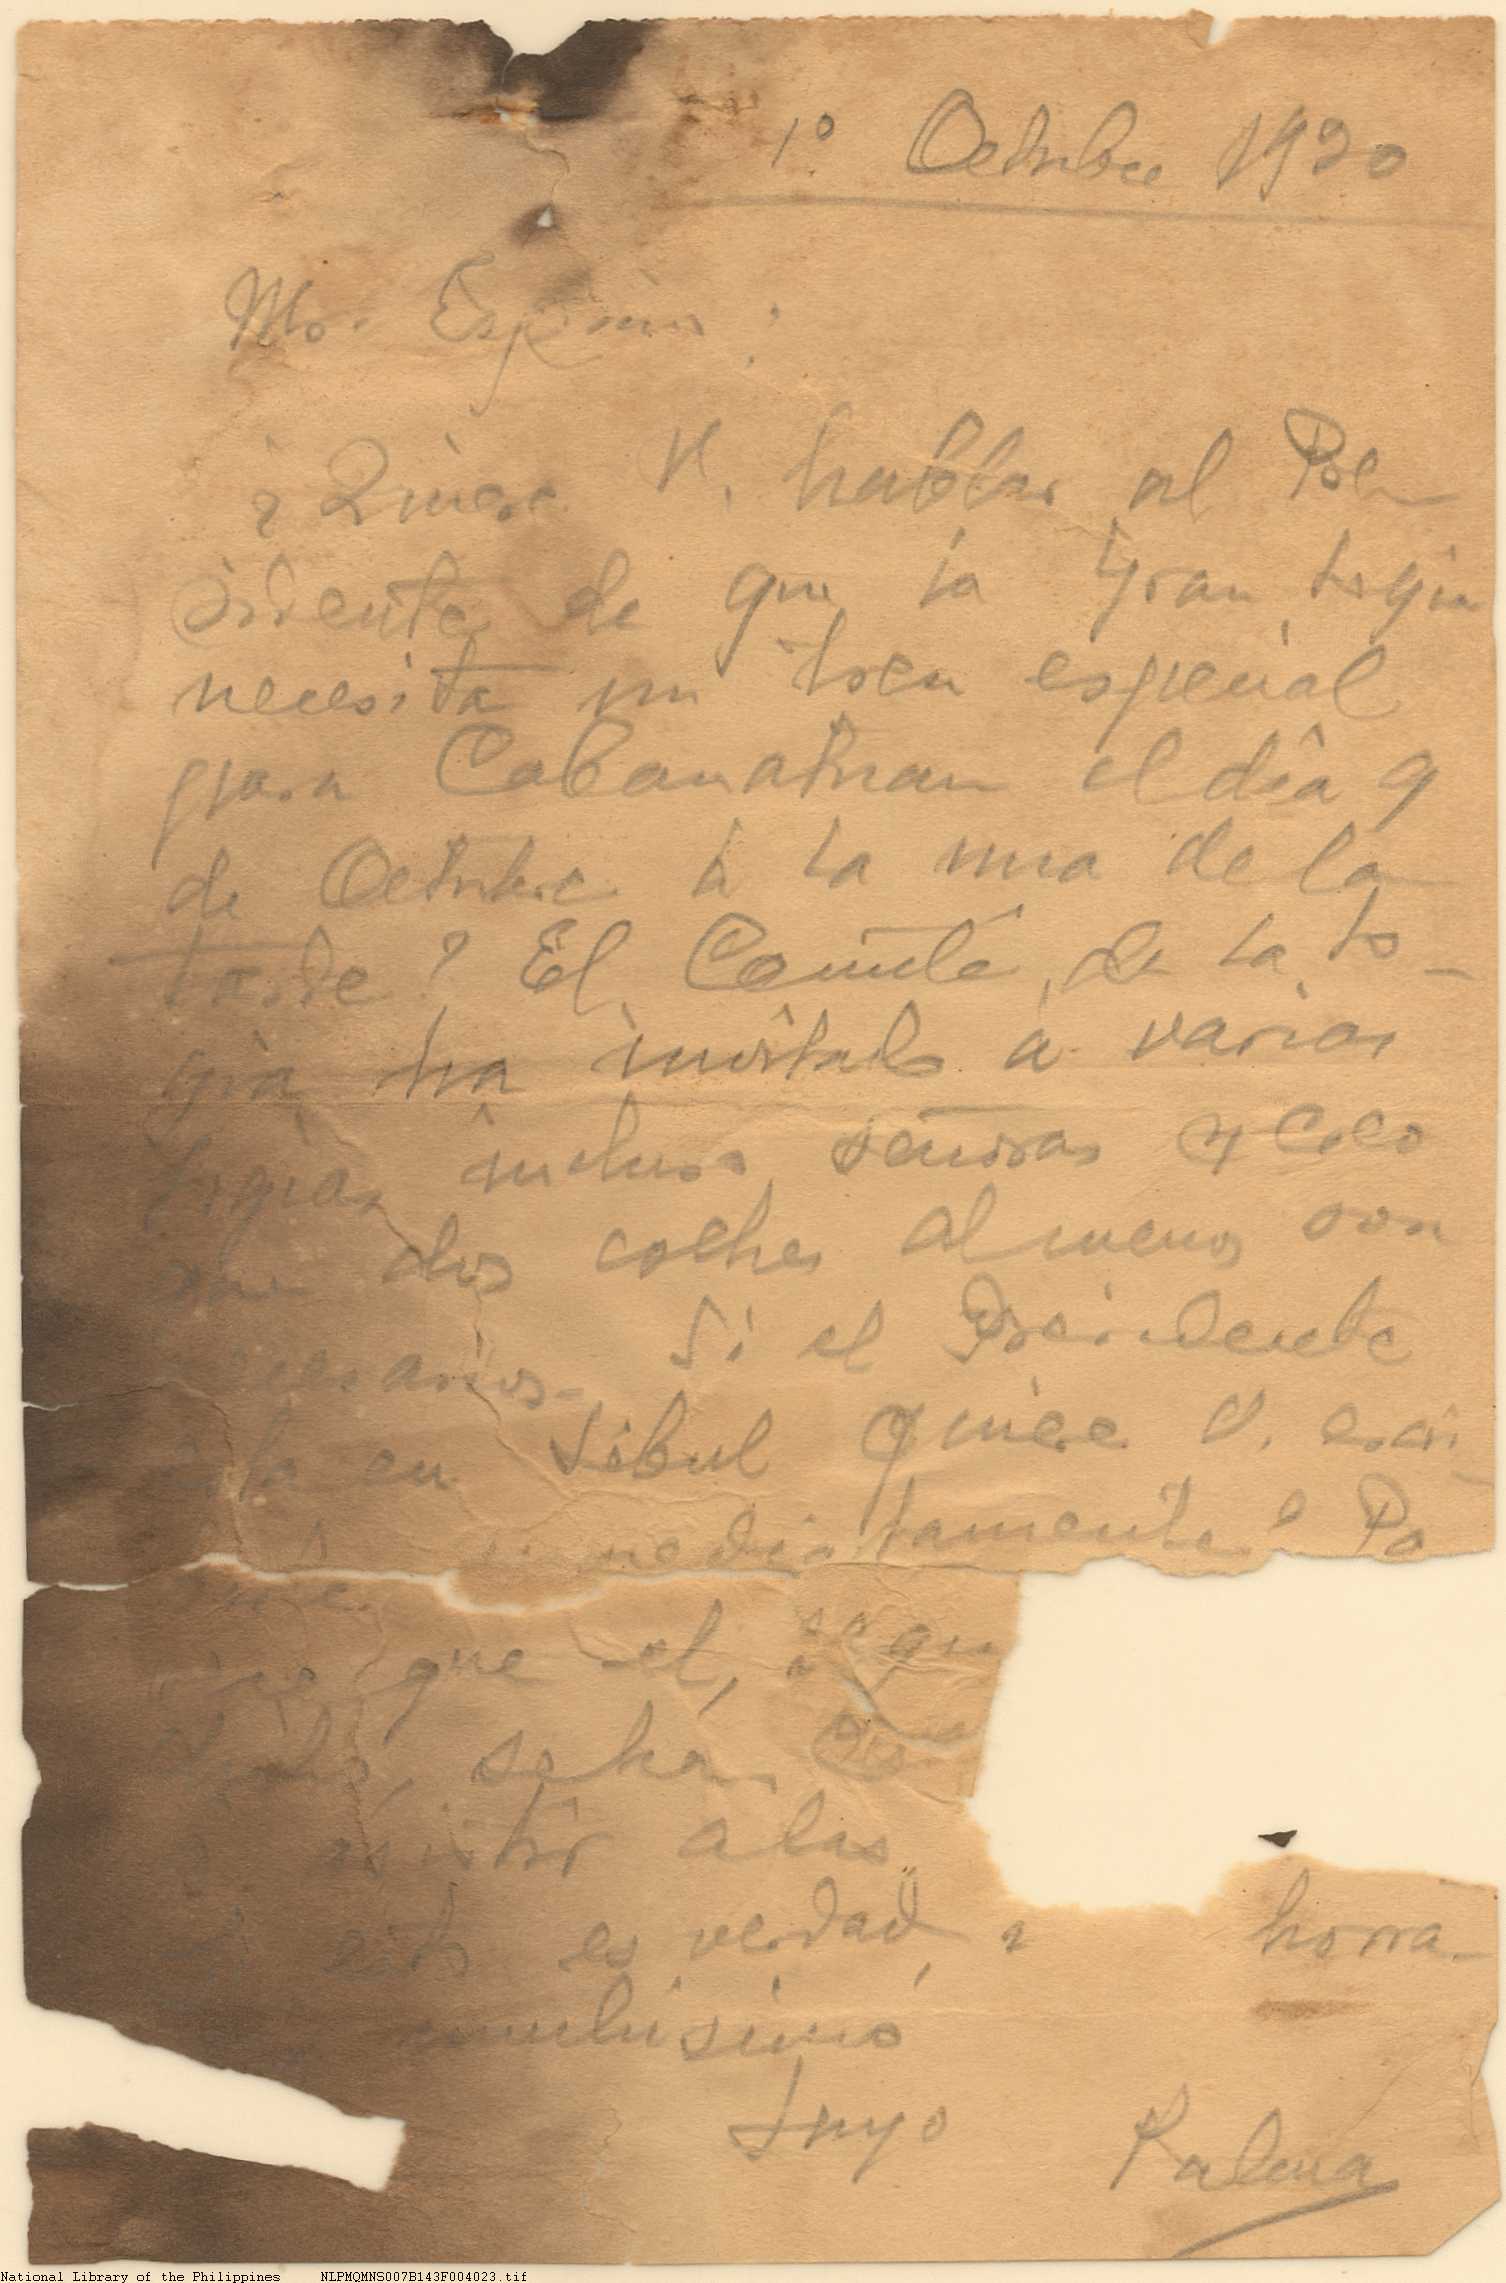 1º Octubre 1920
Mr. Espino :
¿ Quiere V. hablar al Pre
sidente de que la Gran Logia
necesita un tren especial
para Cabanatuan el día 9
de Octubre á la una de la
tarde? El Comité de la Lo-
gia ha invitado á varias
logias, incluso señoras y creo
que dos coches al menos son
necesarios. Si el Presidente
en Sibul quiere V. escri-
inmediatamente? Po
que
que el, segun
se ha
asistir a las
esto es verdad, ahorra-
muchisimo
Suyo Palma
National Library of the Philippines NLPMQMNS007B143F004023.tif